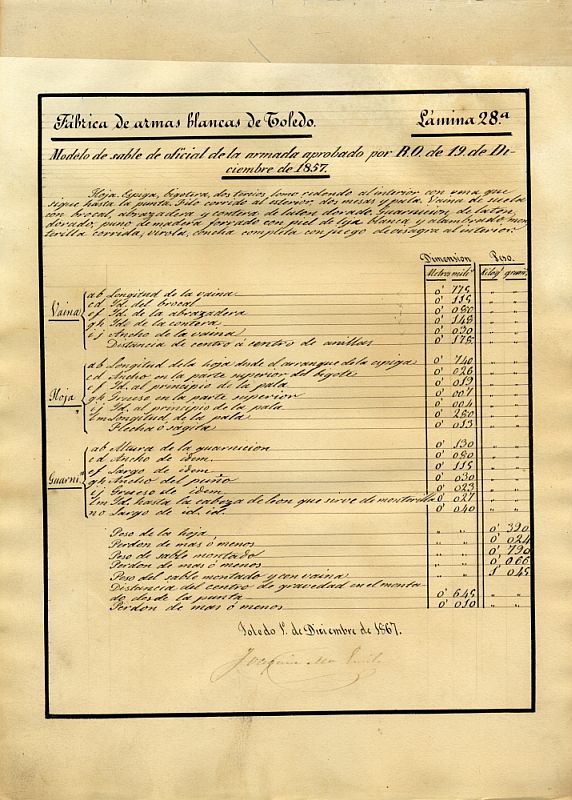 Fábrica de armas blancas de Toledo. Lámina 28.ª
Modelo de sable de oficial de la armada aprobado por R.O. de 19. de Di-
ciembre de 1857.
Hoja. Espiga, bigotera, dos tercios lomo redondo al interior con vena que
sigue hasta la punta. Filo corrido al esterior, dos mesas y pala. Vaina de suela
con brocal, abrazadera y contera de laton dorado. Guarnicion de laton
dorado, puño de madera forrado con piel de lija blanca y alambrado, mon-
terilla corrida, virola, concha completa con juego de visagra al interior.
Dimension Peso.
Metros mili.s Kilog.s gram.s
Vaina
ab Longitud de la vaina 0' 775 " "
cd Id. del brocal 0' 115 " "
ef Id. de la abrazadera 0' 080 " "
gh Id. de la contera 0' 148 " "
ij Ancho de la vaina 0' 030 " "
Distancia de centro á centro de anillas 0' 178 " "
Hoja
ab Longitud de la hoja desde el arranque de la espiga 0' 740 " "
cd Ancho en la parte superior del bigote 0' 026 " "
ef Id. al principio de la pala 0' 019 " "
gh Grueso en la parte superior 0' 007 " "
ij Id. al principio de la pala 0' 004 " "
lm Longitud de la pala 0' 280 " "
" Flecha ó sagita 0' 013 " "
Guarni.n
ab Altura de la guarnicion 0' 130 " "
cd Ancho de idem. 0' 080 " "
ef Largo de idem. 0' 115 " "
gh Ancho del puño 0' 030 " "
ij Grueso de idem. 0' 023 " "
lm Id. hasta la cabeza de leon que sirve de monterilla 0' 027 " "
no Largo de id. id. 0' 040 " "
Peso de la hoja " " 0' 390
Perdon de mas ó menos " " 0' 024
Peso de sable montado " " 0' 790
Perdon de mas ó menos " " 0' 066
Peso del sable montado y con vaina " " 1' 045
Distancia del centro de gravedad en el monta-
do desde la punta 0' 645 " "
Perdon de mas ó menos 0' 010 " "
Toledo 1º. de Diciembre de 1867.
Joaquin